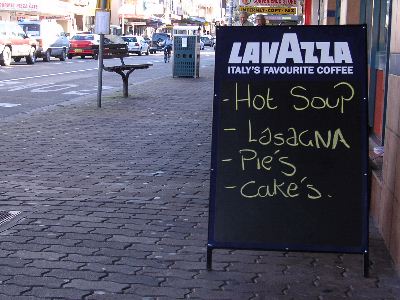 LAVAZZA
ITALY'S FAVOURITE COFFEE
- Hot Soup
- LasagNA
- Pie's
- Cake's.